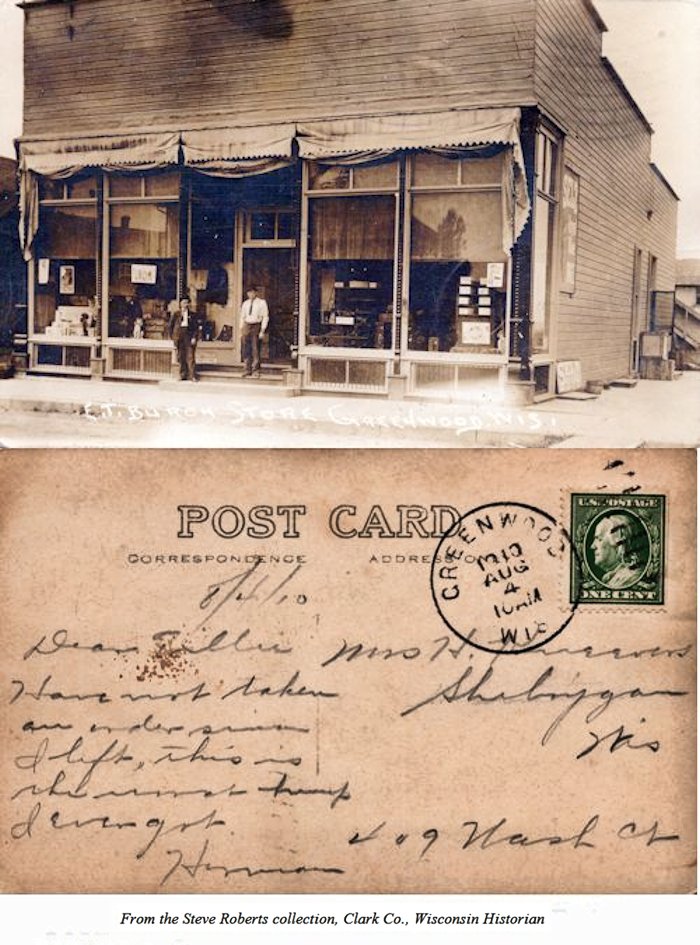 E.T. BURCH STORE GREENWOOD WIS.
POST CARD
CORRESPONDENCE
ADDRESS
GREENWOOD
1910
AUG
4
10 AM
WIS
U.S. POSTAGE
ONE CENT
8/4/10
Dear Tillie
Have not taken
an order since
I left, this is
the worst
I ever got.
Herman
Mrs H.
Sheboygan
Wis
409 Wash Ct
From the Steve Roberts collection, Clark Co., Wisconsin Historian